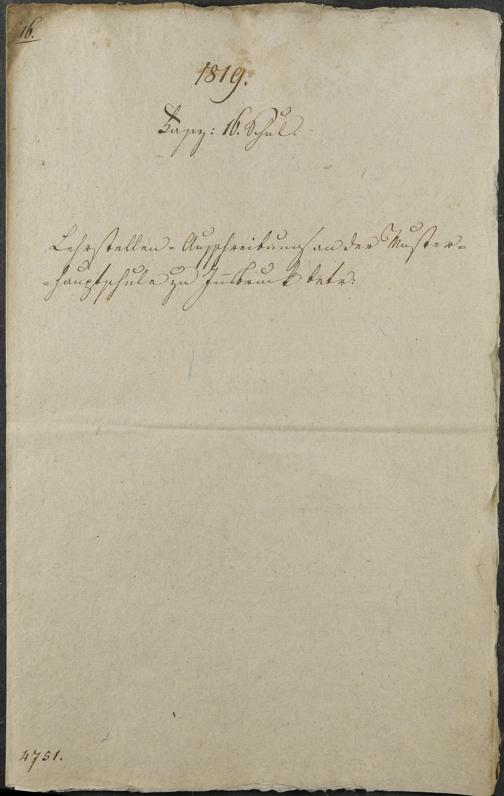 16.
1819.
Fasz: 16. Schul.
Lehrstellen-Ausschreibung an der Muster-
-hauptschule zu Innsbruck betr:
4751.